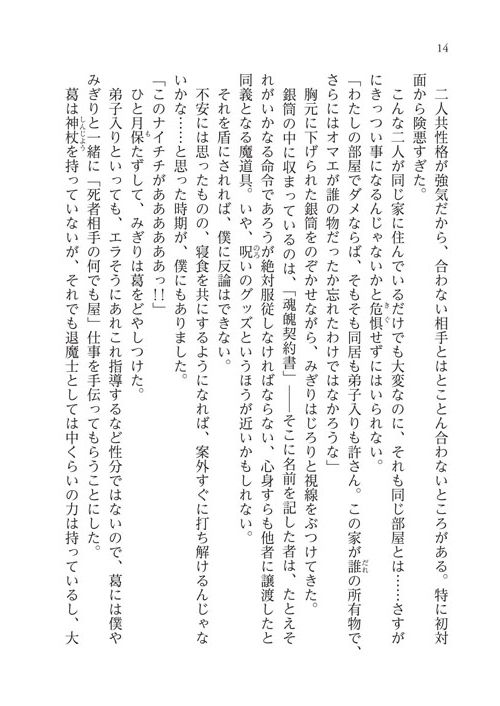 14
二人共性格が強気だから、合わない相手とはとことん合わないところがある。特に初対
面から険悪すぎた。
こんな二人が同じ家に住んでいるだけでも大変なのに、それも同じ部屋とは……さすが
にきっつい事になるんじゃないかと危惧せずにはいられない。
「わたしの部屋でダメならば、そもそも同居も弟子入りも許さん。この家が誰の所有物で、
さらにはオマエが誰の物だったか忘れたわけではなかろうな」
胸元に下げられた銀筒をのぞかせながら、みぎりはじろりと視線をぶつけてきた。
銀筒の中に収まっているのは、「魂魄契約書」――そこに名前を記した者は、たとえそ
れがいかなる命令であろうが絶対服従しなければならない、心身すらも他者に譲渡したと
同義となる魔道具。いや、呪いのグッズというほうが近いかもしれない。
それを盾にされれば、僕に反論はできない。
不安には思ったものの、寝食を共にするようになれば、案外すぐに打ち解けるんじゃな
いかな……と思った時期が、僕にもありました。
「このナイチチがああああああっ!!」
ひと月保たずして、みぎりは葛をどやしつけた。
弟子入りといっても、エラそうにあれこれ指導するなど性分ではないので、葛には僕や
みぎりと一緒に「死者相手の何でも屋」仕事を手伝ってもらうことにした。
葛は神杖を持っていないが、それでも退魔士としては中くらいの力は持っているし、大